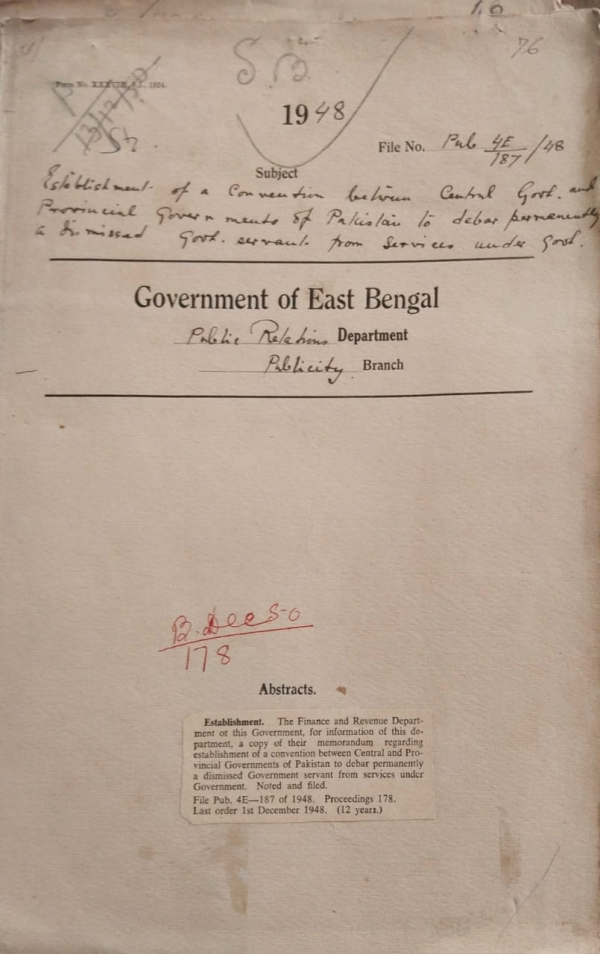 76
S.B.
13/12/50
1948
File No. Pub 4E/187/48
Subject
Establishment of a Convention between Central Govt. and
Provincial Governments of Pakistan to debar permanently
a dismissed Govt. servant from services under Govt.
Government of East Bengal
Public Relations Department
Publicity Branch
B. Dec 50
178
Abstracts.
Establishment. The Finance and Revenue Depart-
ment of this Government, for information of this de-
partment, a copy of their memorandum regarding
establishment of a convention between Central and Pro-
vincial Governments of Pakistan to debar permanently
a dismissed Government servant from services under
Government. Noted and filed.
File Pub. 4E—187 of 1948. Proceedings 178.
Last order 1st December 1948. (12 years.)